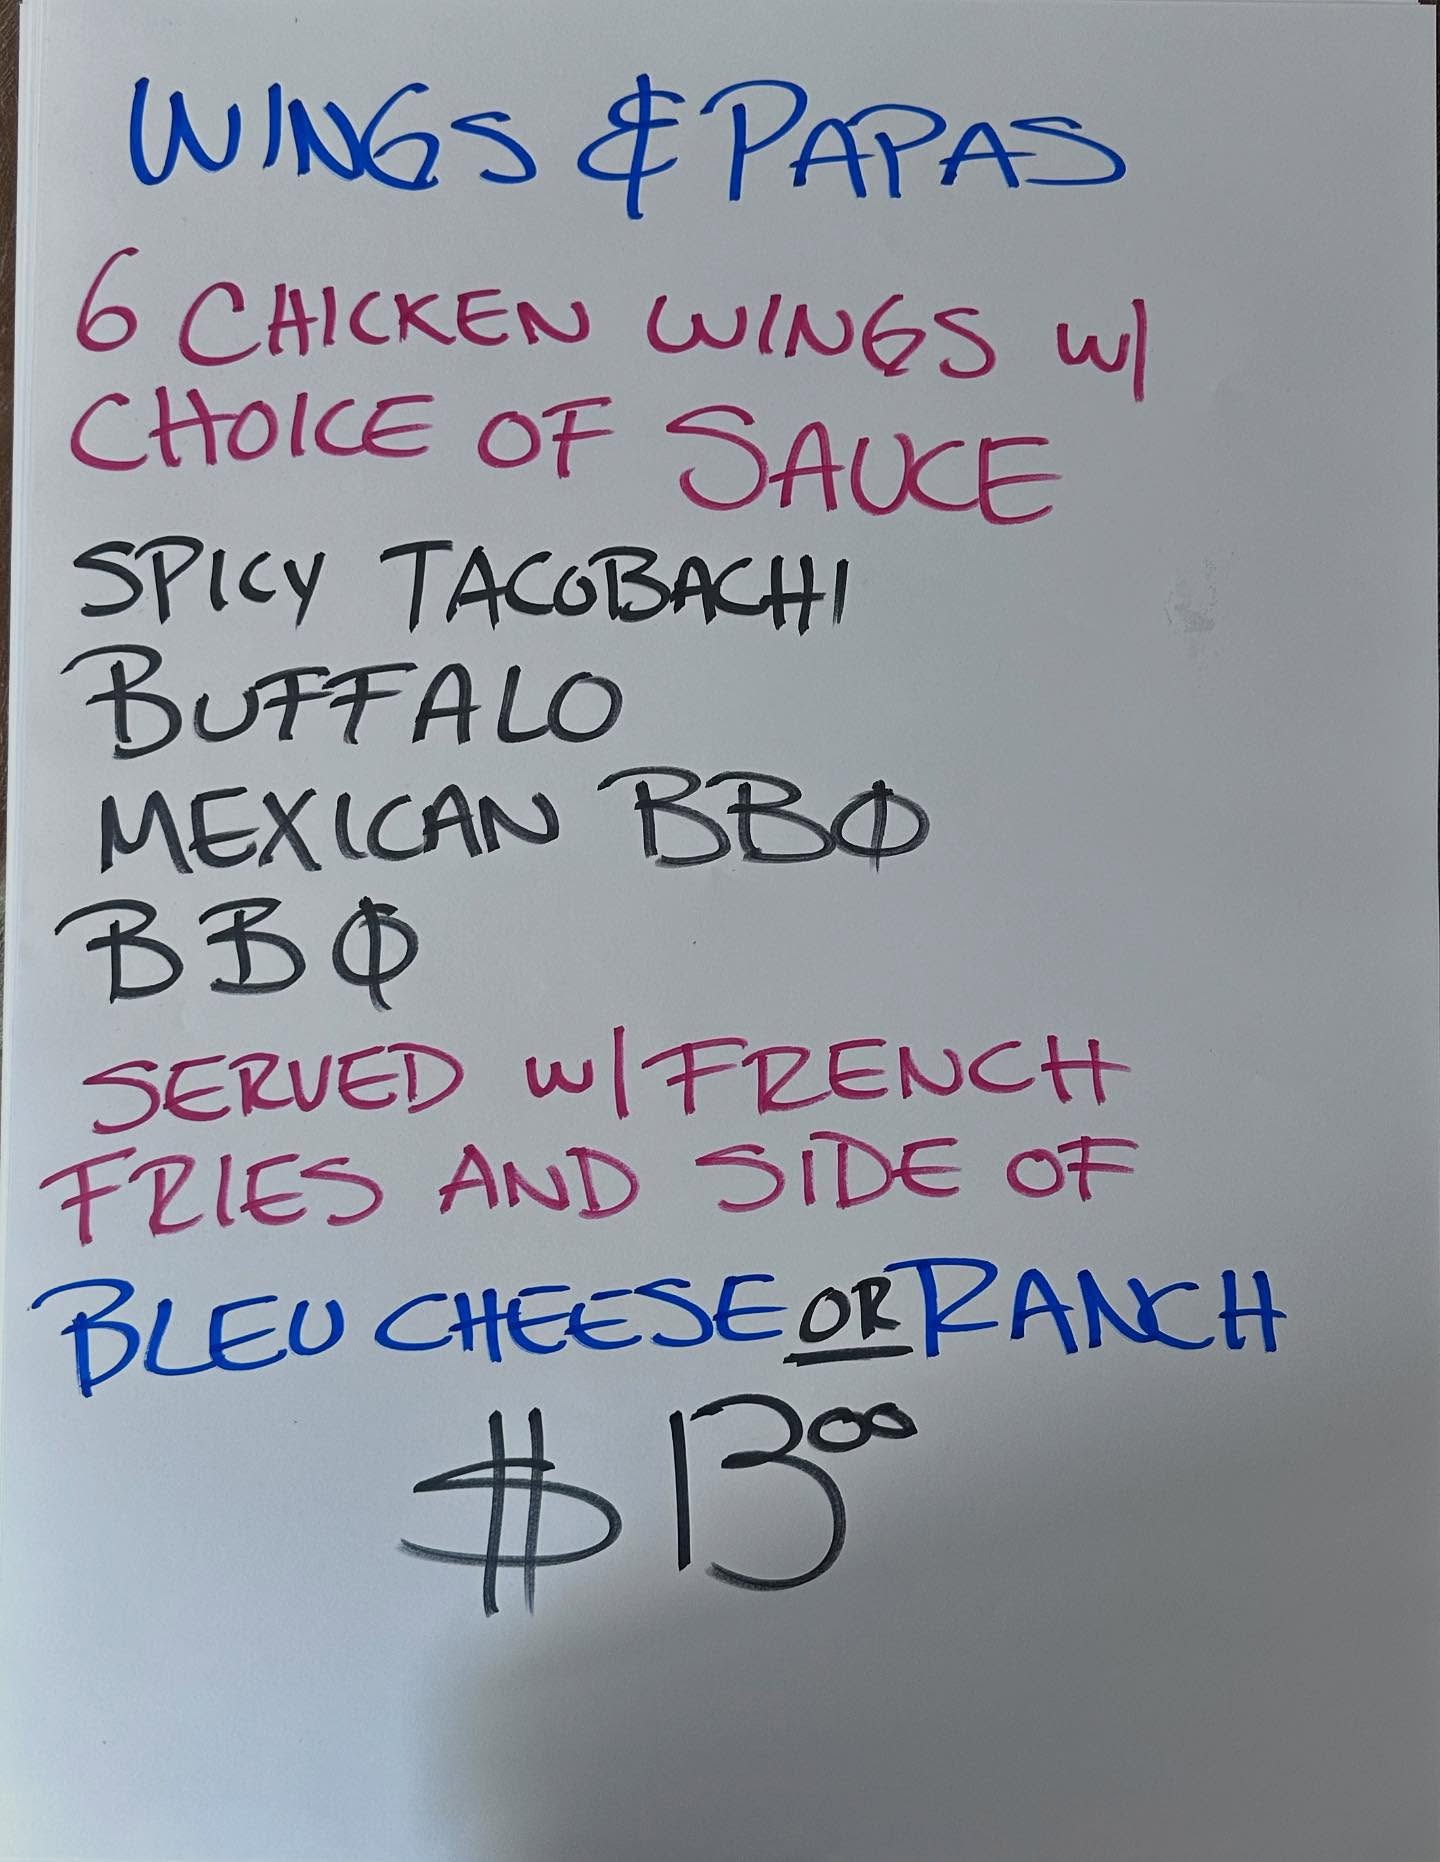 WINGS & PAPAS
6 CHICKEN WINGS w/
CHOICE OF SAUCE
SPICY TACOBACHI
BUFFALO
MEXICAN BBQ
BBQ
SERVED w/ FRENCH
FRIES AND SIDE OF
BLEU CHEESE OR RANCH
$13.00